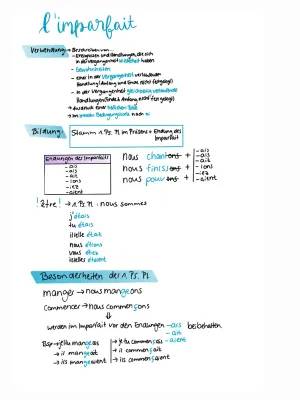 l'imparfait
Verwendung → Beschreiben von
- Ereignissen und Handlungen, die sich
in der Vergangenheit wiederholt haben
- Gewohnheiten
- einer in der Vergangenheit verlaufenden
Handlung (Anfang und Ende nicht festgelegt)
- in der Vergangenheit gleichzeitig verlaufende
Handlungen (Ende & Anfang nicht festgelegt)
→ Ausdruck einer höflichen Bitte
→ im irrealen Bedingungssatz nach si
Bildung
Stamm 1. Ps. Pl. im Präsens + Endung des
Imparfait
Endungen des Imparfait
- ais
- ais
- ait
- ions
- iez
- aient
nous chantons +
nous finissons +
nous pouvons +
- ais
- ais
- ait
- ions
- iez
- aient
! être ! → 1. Ps. Pl.: nous sommes
j'étais
tu étais
il/elle était
nous étions
vous étiez
ils/elles étaient
Besonderheiten der 1. Ps. Pl.
manger → nous mangeons
commencer → nous commençons
werden im Imparfait vor den Endungen -ais beibehalten
-ait
-aient
Bsp → je/tu mangeais
→ il mangeait
→ ils mangeaient
→ je/tu commençais
→ il commençait
→ ils commençaient